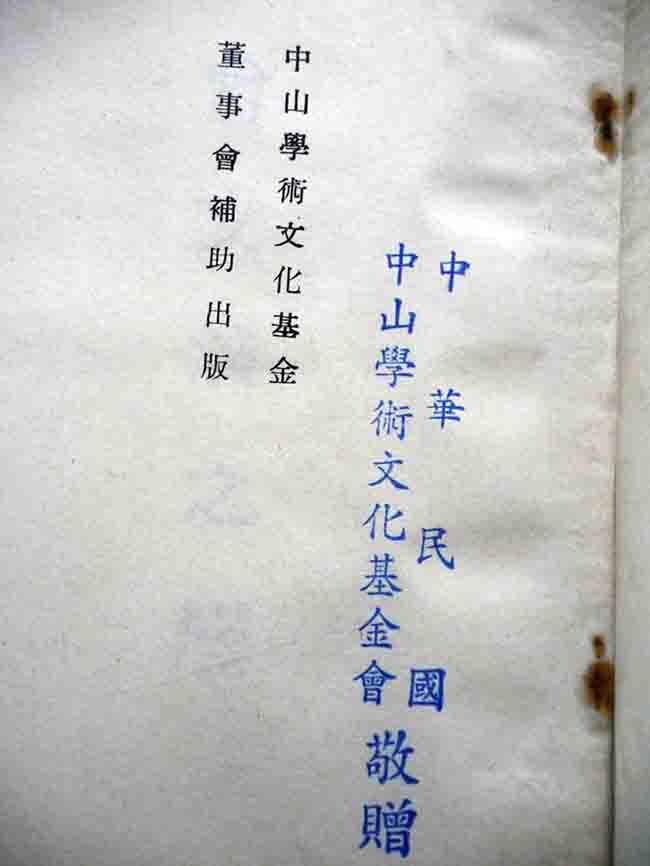 中華民國
中山學術文化基金會敬贈
中山學術文化基金
董事會補助出版